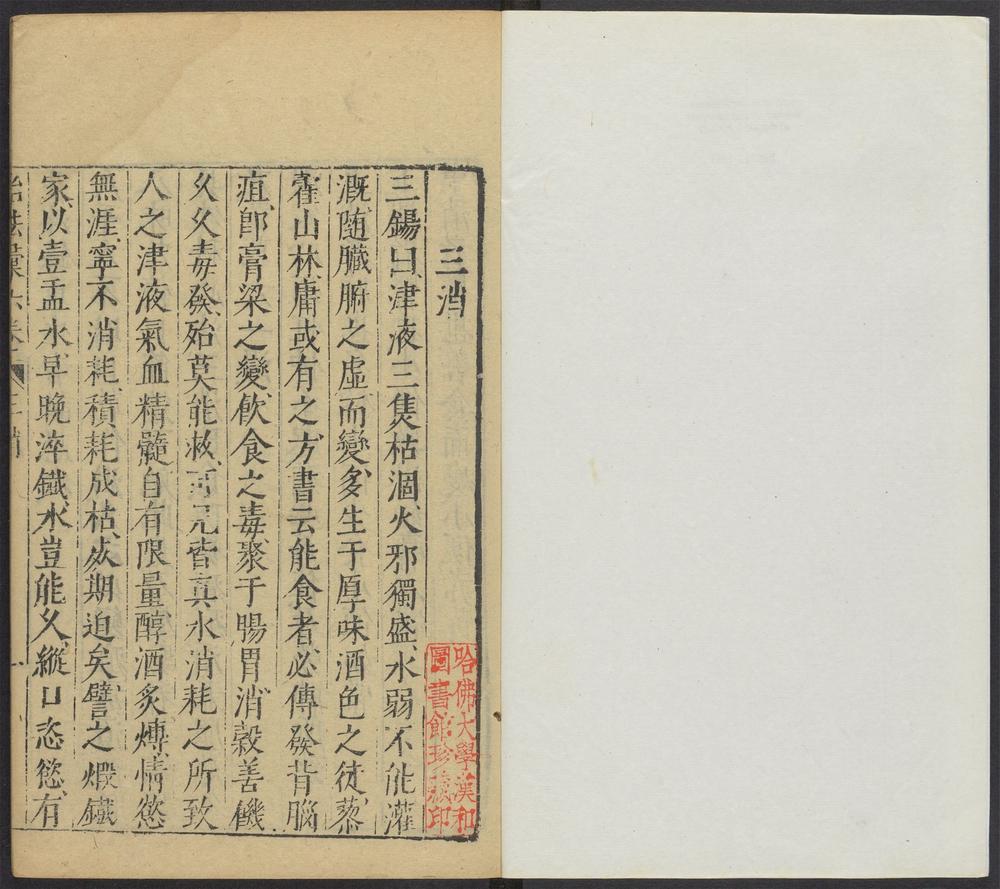 三消
三錫曰津液三焦枯涸火邪獨盛水弱不能灌
溉随臟腑之虛而變多生于厚味酒色之徒藜
藿山林庸或有之方書云能食者必傳發背腦
疽卽膏粱之變飲食之毒聚于腸胃消穀善饑
久久毒發殆莫能救百凡皆真水消耗之所致
人之津液氣血精髓自有限量醇酒炙煿情慾
無涯寧不消耗積耗成枯歲期迫矣譬之煅鐵
家以壹盂水早晚淬鐵水豈能久縱口恣慾有
治法彙六卷 三消 一
哈佛大學漢和
圖書館珍藏印